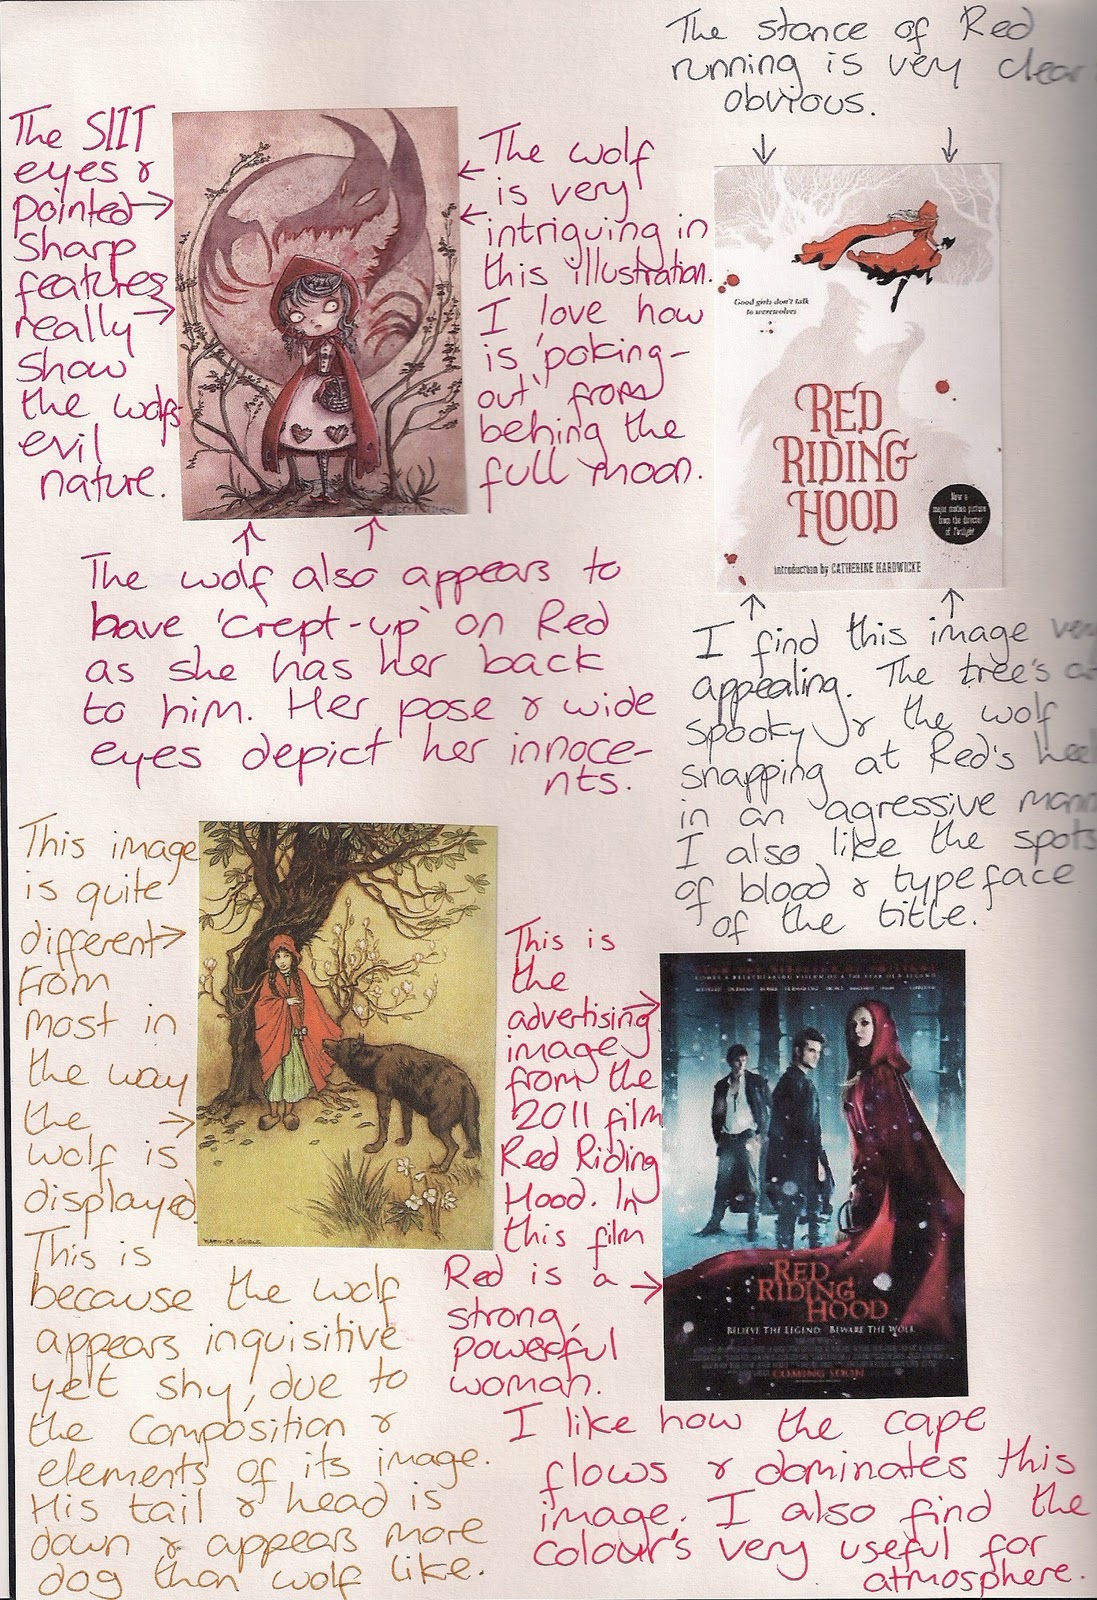 The stance of Red
running is very clear
obvious.
The SlIT
eyes &
pointed
sharp
features
really
show
the wolfs
evil
nature.
The wolf
is very
intriguing in
this illustration.
I love how
is 'poking-
out' from
behing the
full moon.
Good girls don't talk
to werewolves
RED
RIDING
HOOD
Now a
major motion picture
from the director
of Twilight
introduction by CATHERINE HARDWICKE
The wolf also appears to
have 'crept-up' on Red
as she has her back
to him. Her pose & wide
eyes depict her innoce-
nts.
I find this image very
appealing. The tree's
spooky & the wolf
snapping at Red's heel
in an agressive mann
I also like the spots
of blood & typeface
of the title.
This image
is quite
different
from
most in
the way
the
wolf is
displayed.
This is
because the wolf
appears inquisitive
yet shy, due to
the composition &
elements of its image.
His tail & head is
down & appears more
dog than wolf like.
This is
the
advertising
image
from the
2011 film
Red Riding
Hood. In
this film
Red is a
strong,
powerful
woman.
RED
RIDING
HOOD
BELIEVE THE LEGEND BEWARE THE WOLF
COMING SOON
I like how the cape
flows & dominates this
image. I also find the
colour's very useful for
atmosphere.